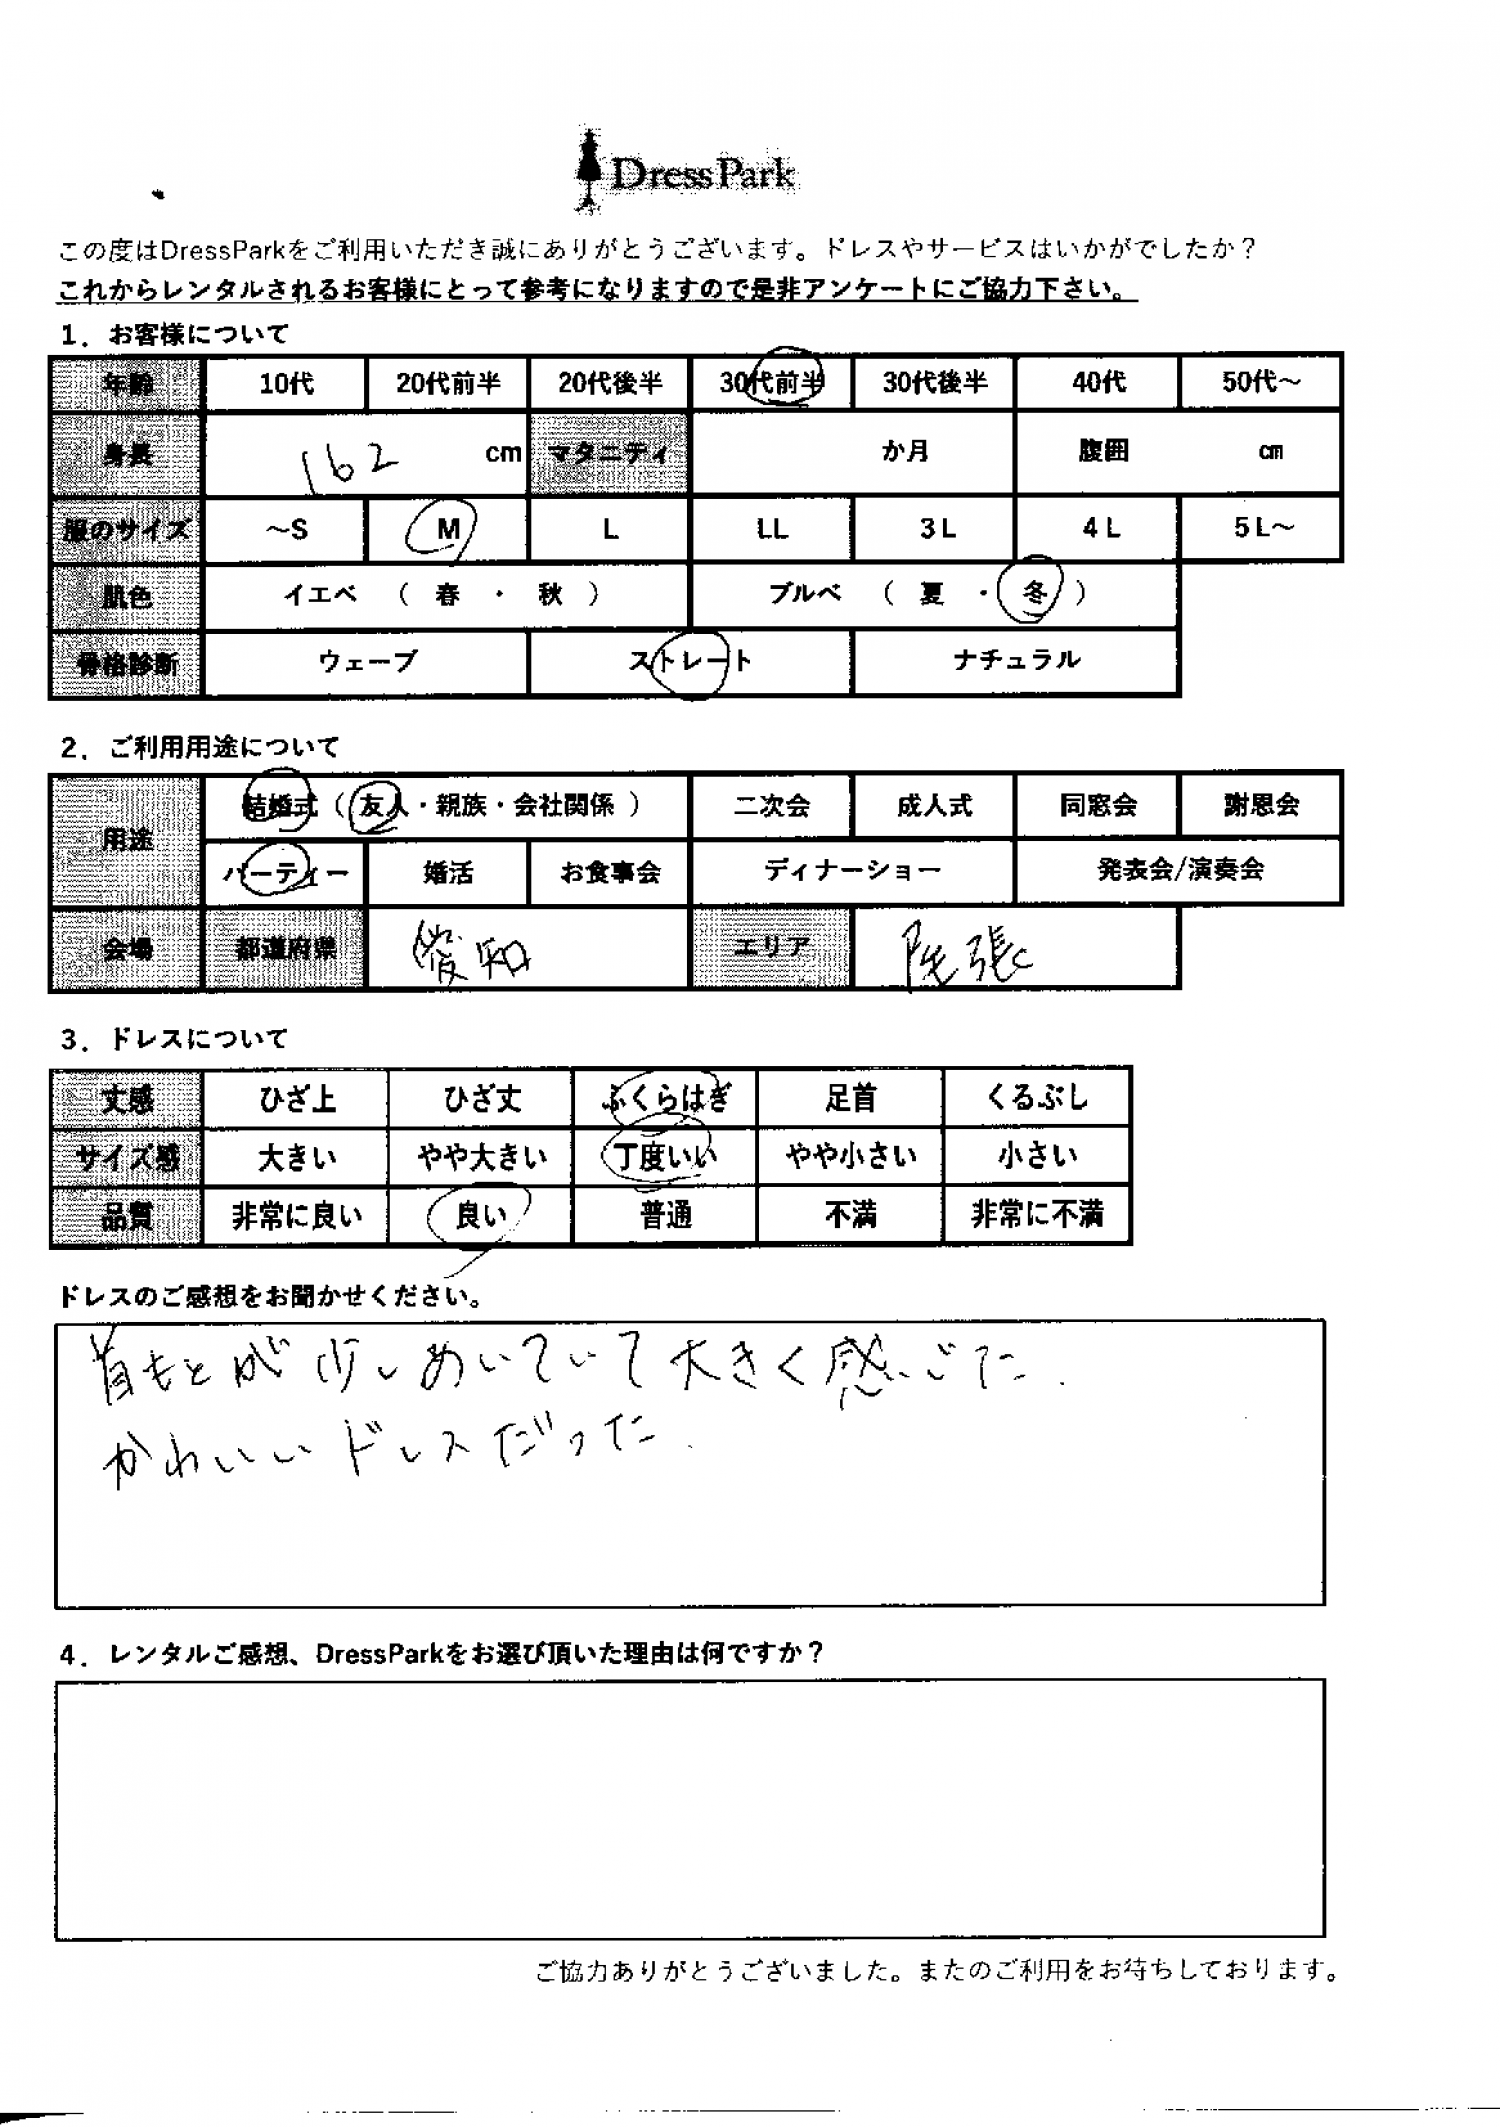 DressPark
この度はDressParkをご利用いただき誠にありがとうございます。ドレスやサービスはいかがでしたか？
これからレンタルされるお客様にとって参考になりますので是非アンケートにご協力下さい。
1．お客様について
年齢 10代 20代前半 20代後半 30代前半 30代後半 40代 50代～
身長 162 cm マタニティ か月 腹囲 cm
服のサイズ ～S M L LL 3L 4L 5L～
肌色 イエベ （ 春 ・ 秋 ） ブルベ （ 夏 ・ 冬 ）
骨格診断 ウェーブ ストレート ナチュラル
2．ご利用用途について
用途 結婚式（友人・親族・会社関係） 二次会 成人式 同窓会 謝恩会
パーティー 婚活 お食事会 ディナーショー 発表会/演奏会
会場 都道府県 愛知 エリア 尾張
3．ドレスについて
丈感 ひざ上 ひざ丈 ふくらはぎ 足首 くるぶし
サイズ感 大きい やや大きい 丁度いい やや小さい 小さい
品質 非常に良い 良い 普通 不満 非常に不満
ドレスのご感想をお聞かせください。
首もとが少しあいていて大きく感じた.
かわいいドレスだった.
4．レンタルご感想、DressParkをお選び頂いた理由は何ですか？
ご協力ありがとうございました。またのご利用をお待ちしております。